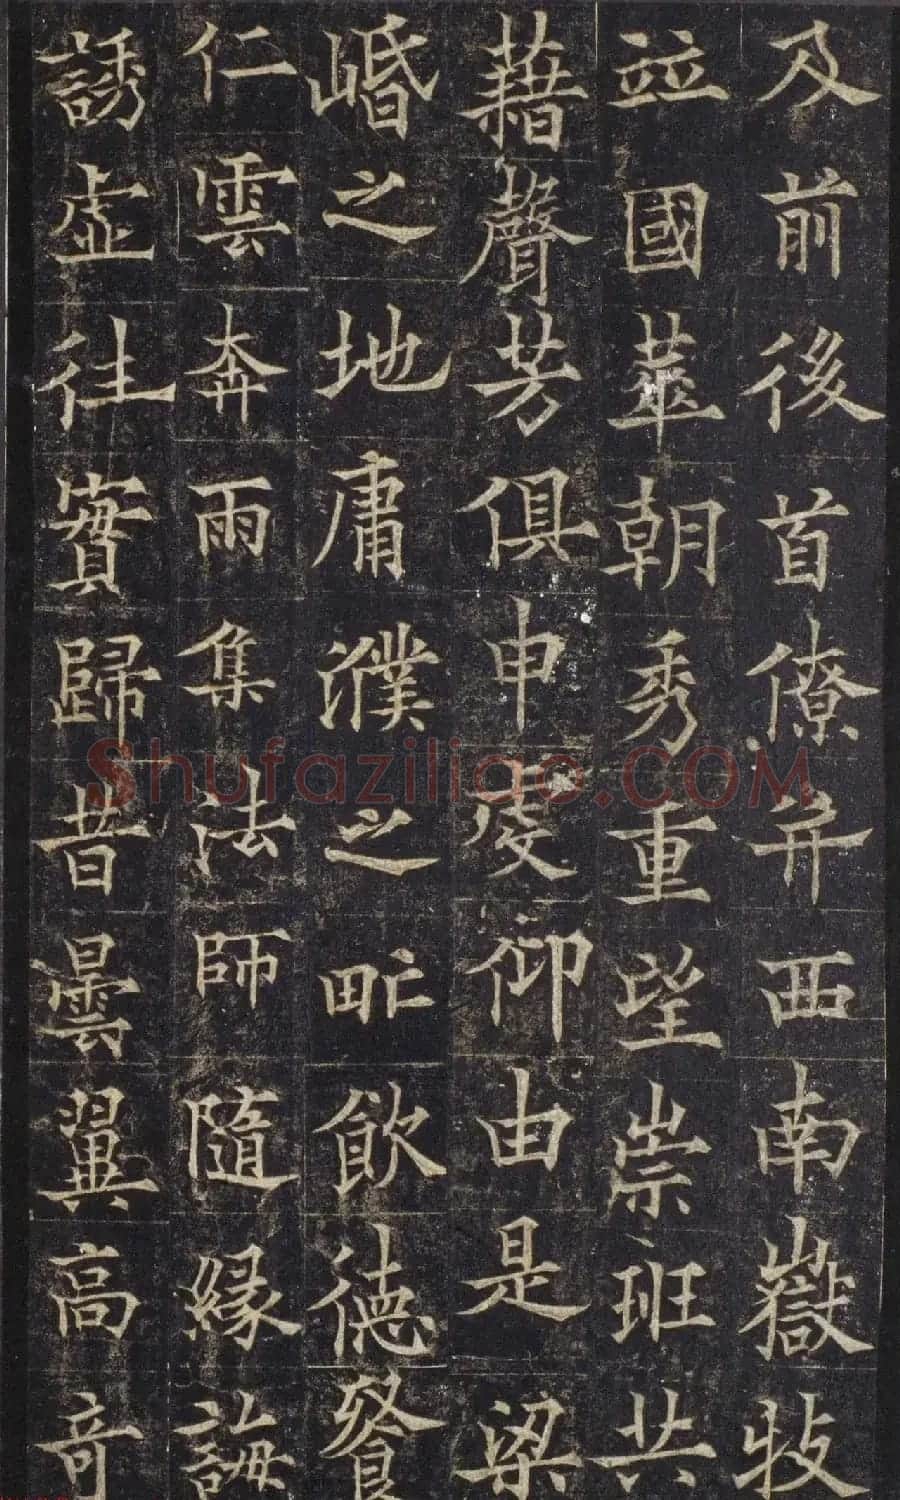 及前後首僚并西南嶽牧
竝國華朝秀重望崇班共
藉聲芳俱申虔仰由是梁
㟭之地庸濮之甿飲德餐
仁雲奔雨集法師隨緣誨
誘虛往實歸昔曇翼高奇
Shufaziliao.COM